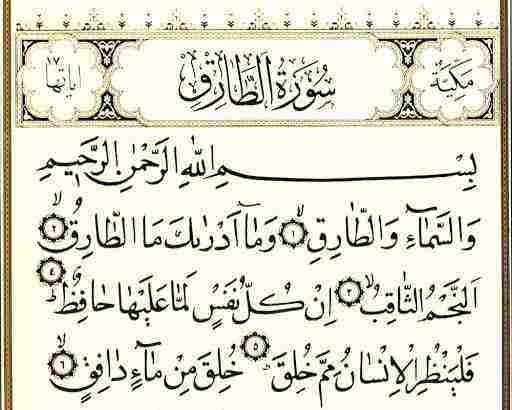 مكية سورة الطارق آياتها ١٧
بِسْمِ اللّٰهِ الرَّحْمٰنِ الرَّحِيمِ
وَالسَّمَآءِ وَالطَّارِقِۙ ﴿١﴾ وَمَآ اَدْرٰيكَ مَا الطَّارِقُۙ ﴿٢﴾
اَلنَّجْمُ الثَّاقِبُۙ ﴿٣﴾ اِنْ كُلُّ نَفْسٍ لَمَّا عَلَيْهَا حَافِظٌۜ ﴿٤﴾
فَلْيَنْظُرِ الْاِنْسَانُ مِمَّ خُلِقَۜ ﴿٥﴾ خُلِقَ مِنْ مَآءٍ دَافِقٍۙ ﴿٦﴾